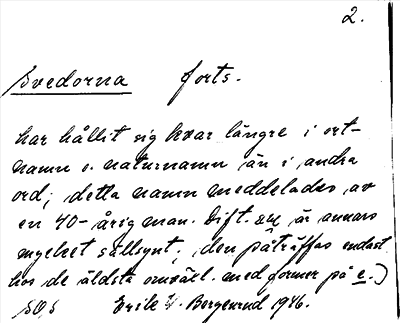 2.
Svedorna forts.
har hållit sig kvar längre i ort-
namn o. naturnamn än i andra
ord; detta namn meddelades av
en 40-årig man. Dift. är annars
mycket sällsynt, den påträffas endast
hos de äldsta omväxl. med former på e.)
SO, s Erik W. Bergenrud 1946.